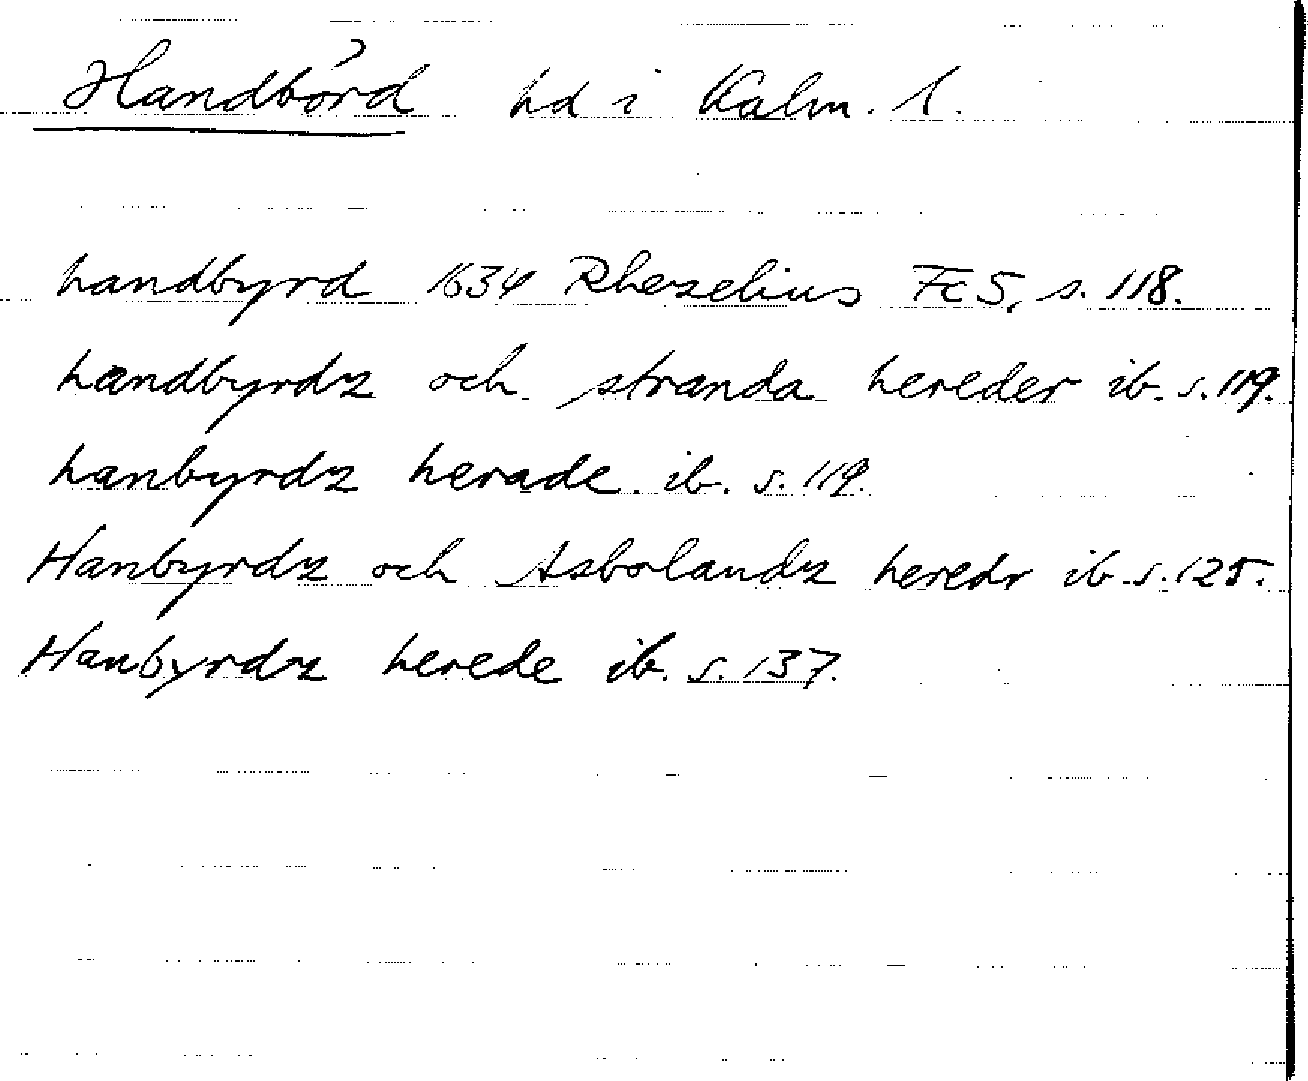 Handbörd hd i Kalm. l.
handbyrd 1634 Rhezelius Fc 5, s. 118.
handbyrdz och stranda hereder ib. s. 119.
hanbyrdz herade ib. s. 119.
Hanbyrdz och Asbolandz heredr ib. s. 125.
Hanbyrdz herede ib. s. 137.